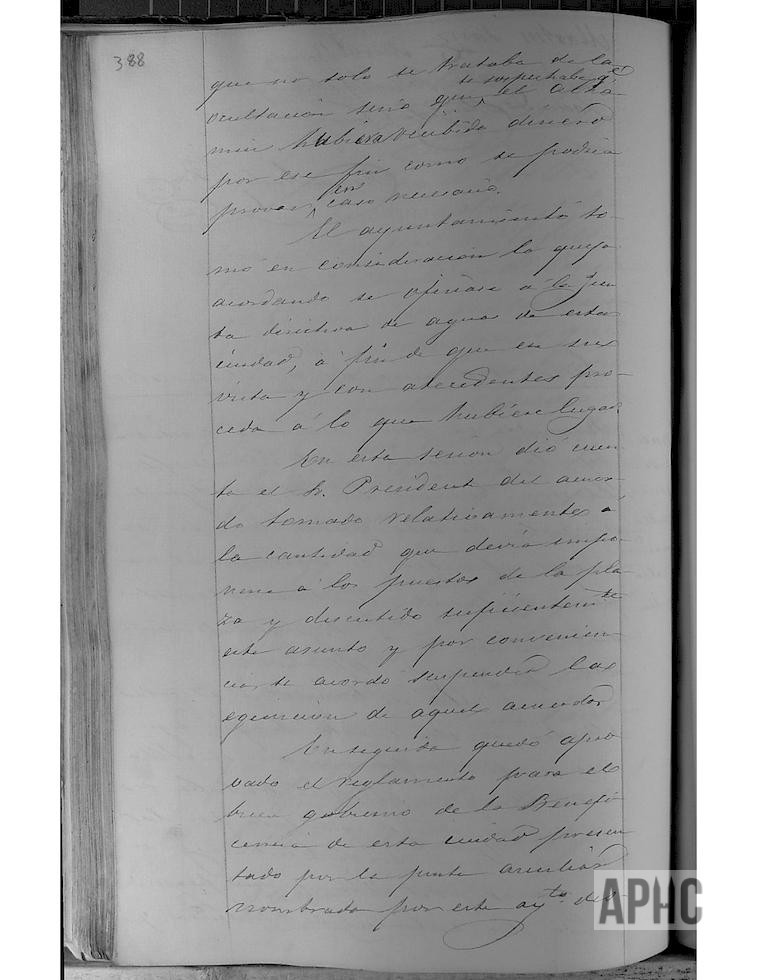 388
que no solo se trataba de la
ocultacion sino que se sospechaba q.e el alba-
nin hubiera recibido dinero
por ese fin como se podria
provar en caso necesario.
El ayuntamiento to-
mó en consideracion la queja
acordando se oficiase á la Jun-
ta directiva de aguas de esta
ciudad, á fin de que en su
vista y con atecedentes pro-
ceda á lo que hubiere lugar
En esta sesion dió cuen-
ta el Sr. Presidente del acuer-
do tomado relativamente á
la cantidad que devia impo-
nerse á los puestos de la pla-
za y discutido suficientem.te
este asunto y por convenien-
cia, se acordó suspender la
egecucion de aquel acuerdo
En seguida quedó apro
vado el reglamento para el
buen gobierno de la Benefi
cencia de esta ciudad presen
tado por la junta auxiliar
nombrada por este ay.to
APHC